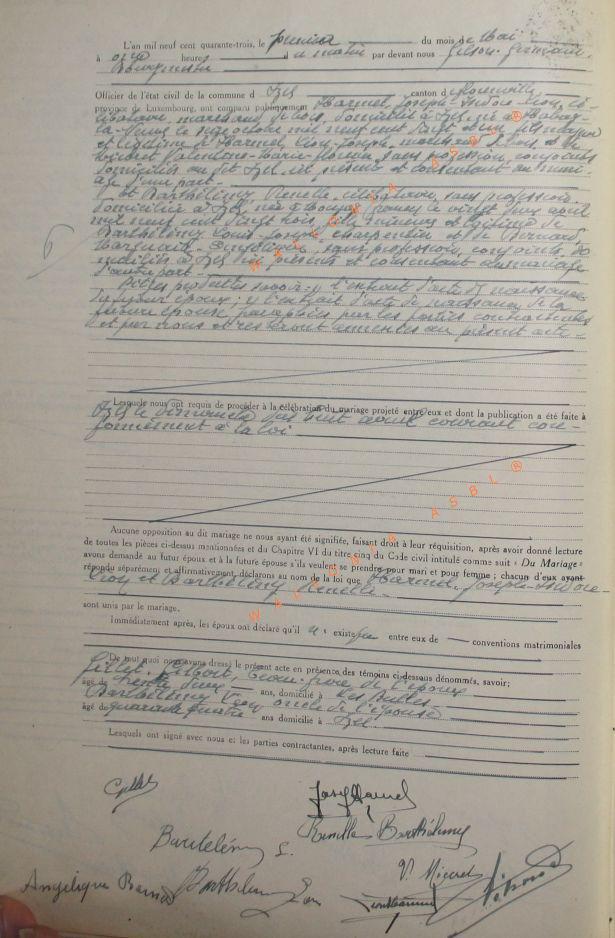 L'an mil neuf cent quarante-trois, le premier du mois de Mai
à onze heures du matin par devant nous Gilson, Germain
Bourgmestre
Officier de l'état civil de la commune d Izel canton d Florenville
province de Luxembourg, ont comparu publiquement Harmel, Joseph-Isidore-Léon, cé-
libataire, marchand de bois, domicilié à Izel, né à
le onze octobre mil neuf cent vingt et un, fils majeur
et légitime de Harmel, Léon, Joseph, marchand de bois et de
Valentine-Marie sans profession, conjoints
domiciliés au dit Izel, ici présents et consentant au mari-
age d'une part.
Et Barthélemy Renelle, célibataire, sans profession
domiciliée à Izel, née à le vingt deux avril
mil neuf cent vingt trois, fille mineure et légitime de
Barthélemy Louis-Joseph, charpentier et de Bernard,
Marguerite sans profession, conjoints, do-
miciliés à Izel ici présents et consentant au mariage
d'autre part.
Pièces produites 1° l'extrait d'acte de naissance
du futur époux; 2° l'extrait d'acte de naissance de la
future épouse, paraphés par les parties contractantes
et par nous et resteront annexés au présent acte
Lesquels nous ont requis de procéder à la célébration du mariage projeté entre eux et dont la publication a été faite à
Izel le dimanche dix huit avril courant con-
formément à la loi
Aucune opposition au dit mariage ne nous ayant été signifiée, faisant droit à leur réquisition, après avoir donné lecture
de toutes les pièces ci-dessus mentionnées et du Chapitre VI du titre cinq du Code civil intitulé comme suit « Du Mariage »
avons demandé au futur époux et à la future épouse s'ils veulent se prendre pour mari et pour femme ; chacun d'eux ayant
répondu séparément et affirmativement, déclarons au nom de la loi que Harmel, Joseph-Isidore-
Léon et Barthélemy Renelle
sont unis par le mariage.
Immédiatement après, les époux ont déclaré qu'il n' existe pas entre eux de conventions matrimoniales
De tout quoi nous avons dressé le présent acte en présence des témoins ci-dessous dénommés, savoir:
Gillet, Gilbert, beau-frère de l'époux
âgé de trente deux ans, domicilié à Les Bulles
Barthélemy Léon oncle de l'épouse
âgé de quarante quatre ans domicilié à Izel
Lesquels ont signé avec nous et les parties contractantes, après lecture faite
Jos Harmel
Renelle Barthélemy
Barthélemy L.
V. Micret
Angélique Bernard
Barthélemy Léon
WALLONIA ASBL ®
WALLONIA ASBL ®